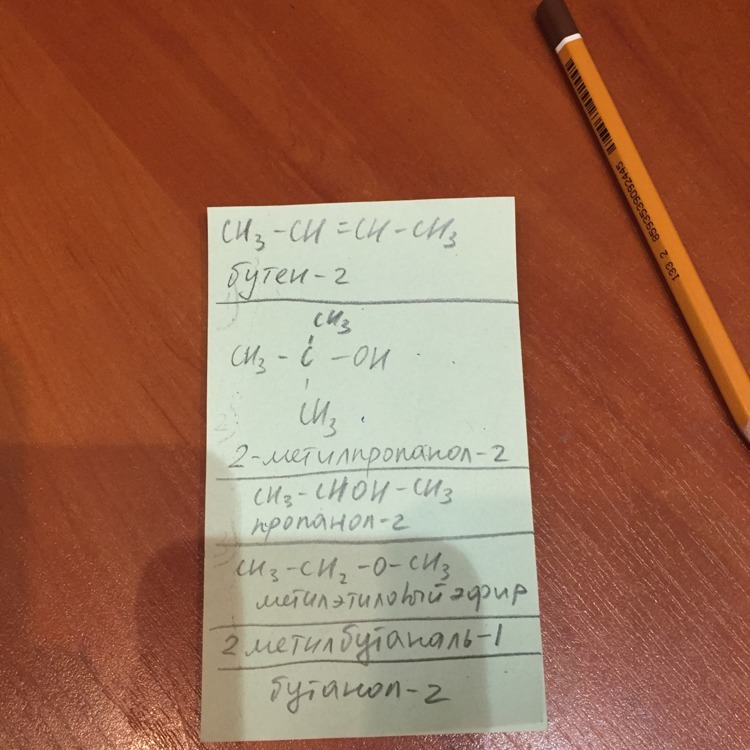 CH₃-CH=CH-CH₃
бутен-2
CH₃
CH₃-C-OH
CH₃
2-метилпропанол-2
CH₃-CHOH-CH₃
пропанол-2
CH₃-CH₂-O-CH₃
метилэтиловый эфир
2 метилбутаналь-1
бутанол-2
133 2 8593539092445